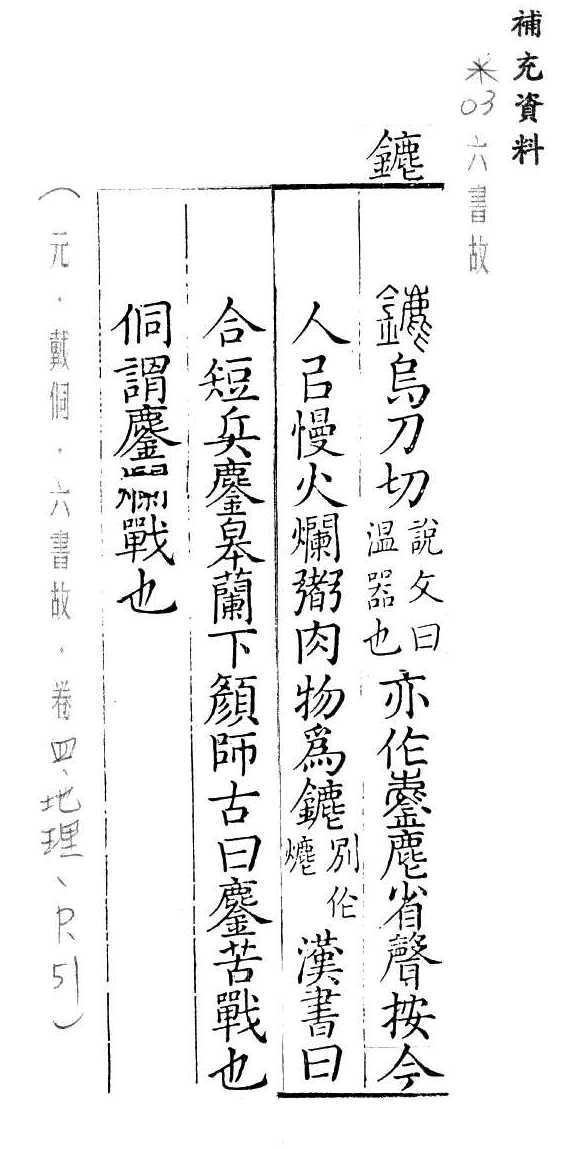 補充資料
※03 六書故
鏕
鏕烏刀切說文曰溫器也亦作鏖麀省聲按今
人㠯慢火爛鬻肉物爲鏕別作熝漢書曰
合短兵鏖皋蘭下顏師古曰鏖苦戰也
侗謂鏖戰也
（元．戴侗．六書故．卷四、地理、P.51）